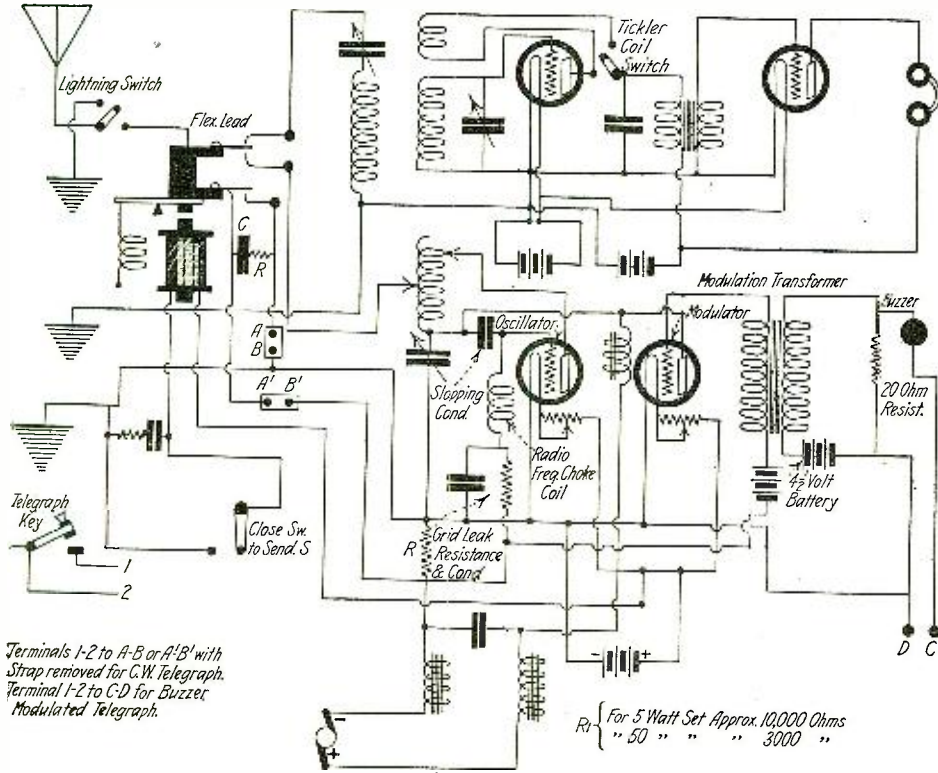 Lightning Switch
Flex. Lead
Tickler
Coil
Switch
C
R
A
B
A' B'
Oscillator
Modulation Transformer
Modulator
Buzzer
20 Ohm
Resist.
Stopping
Cond.
Radio
Freq. Choke
Coil
4½ Volt
Battery
Telegraph
Key
1
2
Close Sw.
to Send. S
R
Grid Leak
Resistance
& Cond.
- +
D C
-
+
Terminals 1-2 to A-B or A'B' with
Strap removed for C.W. Telegraph.
Terminal 1-2 to C-D for Buzzer
Modulated Telegraph.
R₁ { For 5 Watt Set Approx. 10,000 Ohms
" 50 " " " 3000 "